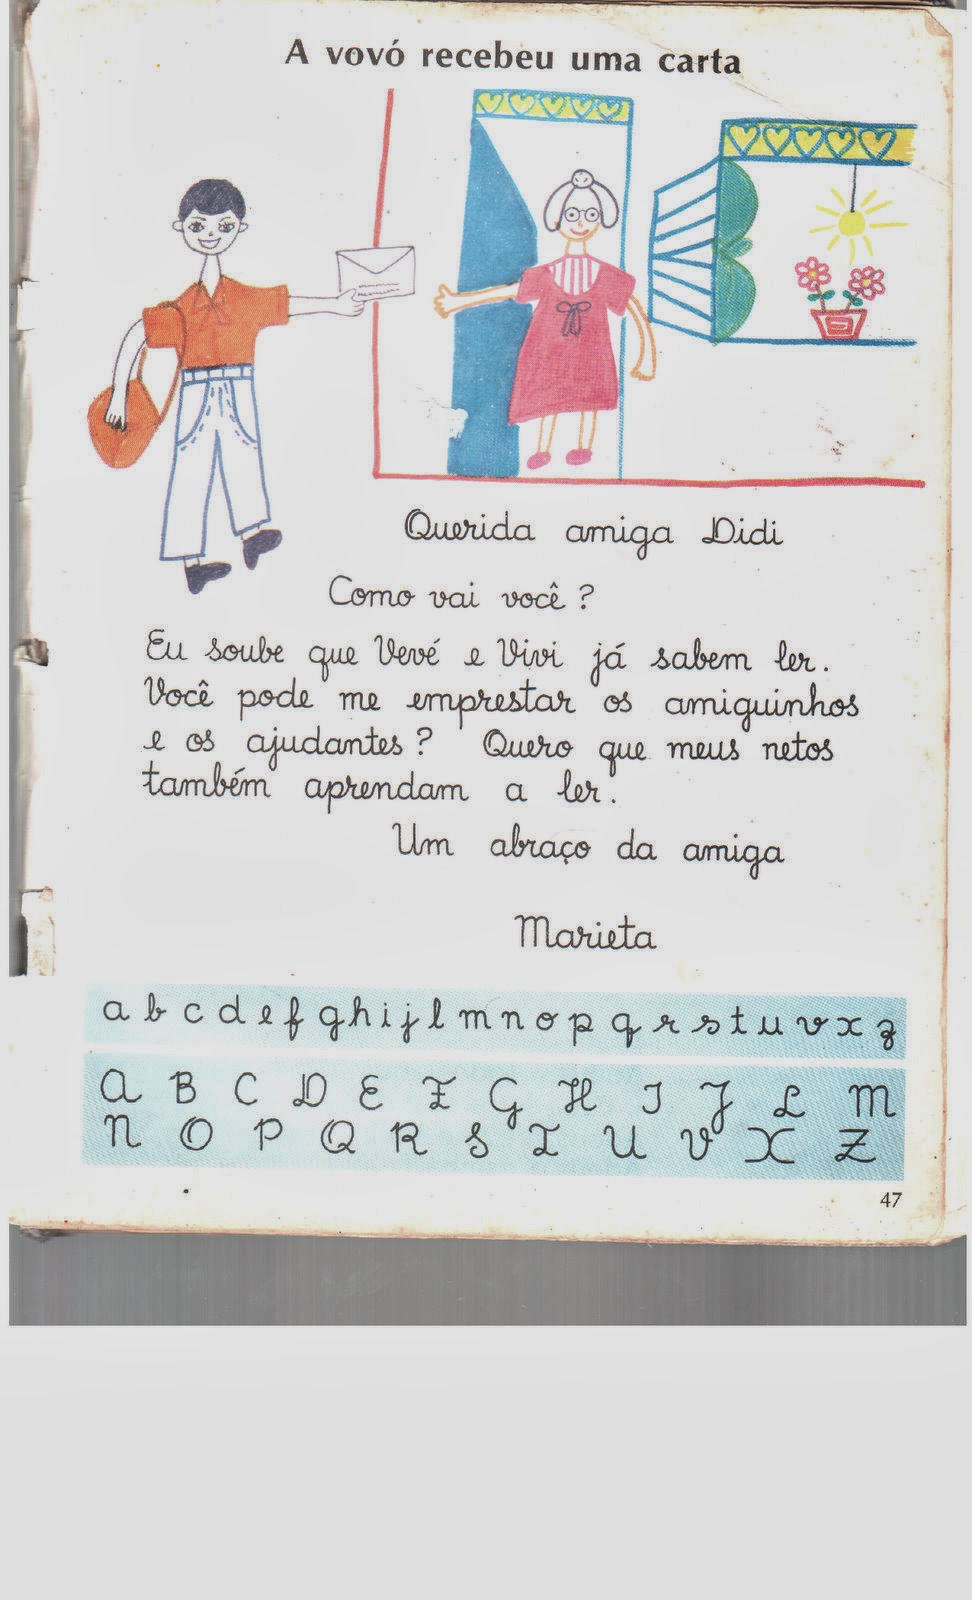 A vovó recebeu uma carta
Querida amiga Didi
Como vai você ?
Eu soube que Vevé e Vivi já sabem ler.
Você pode me emprestar os amiguinhos
e os ajudantes ? Quero que meus netos
também aprendam a ler.
Um abraço da amiga
Marieta
a b c d e f g h i j l m n o p q r s t u v x z
A B C D E F G H I J L M
N O P Q R S T U V X Z
47